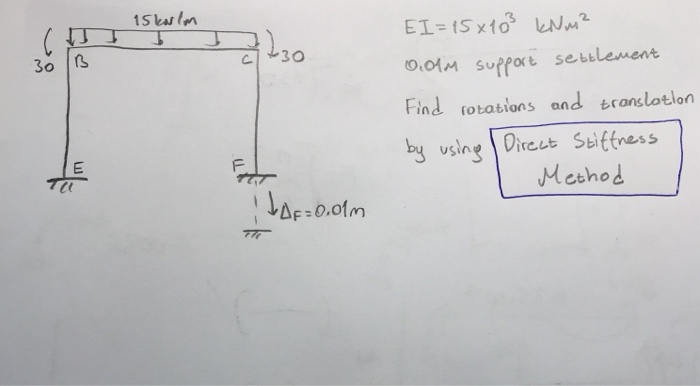 15 kN/m
30
B
C
30
E
F
ΔF=0.01m
EI=15x10³ kNm²
0.01M support settlement
Find rotations and translation
by using Direct Stiffness
Method